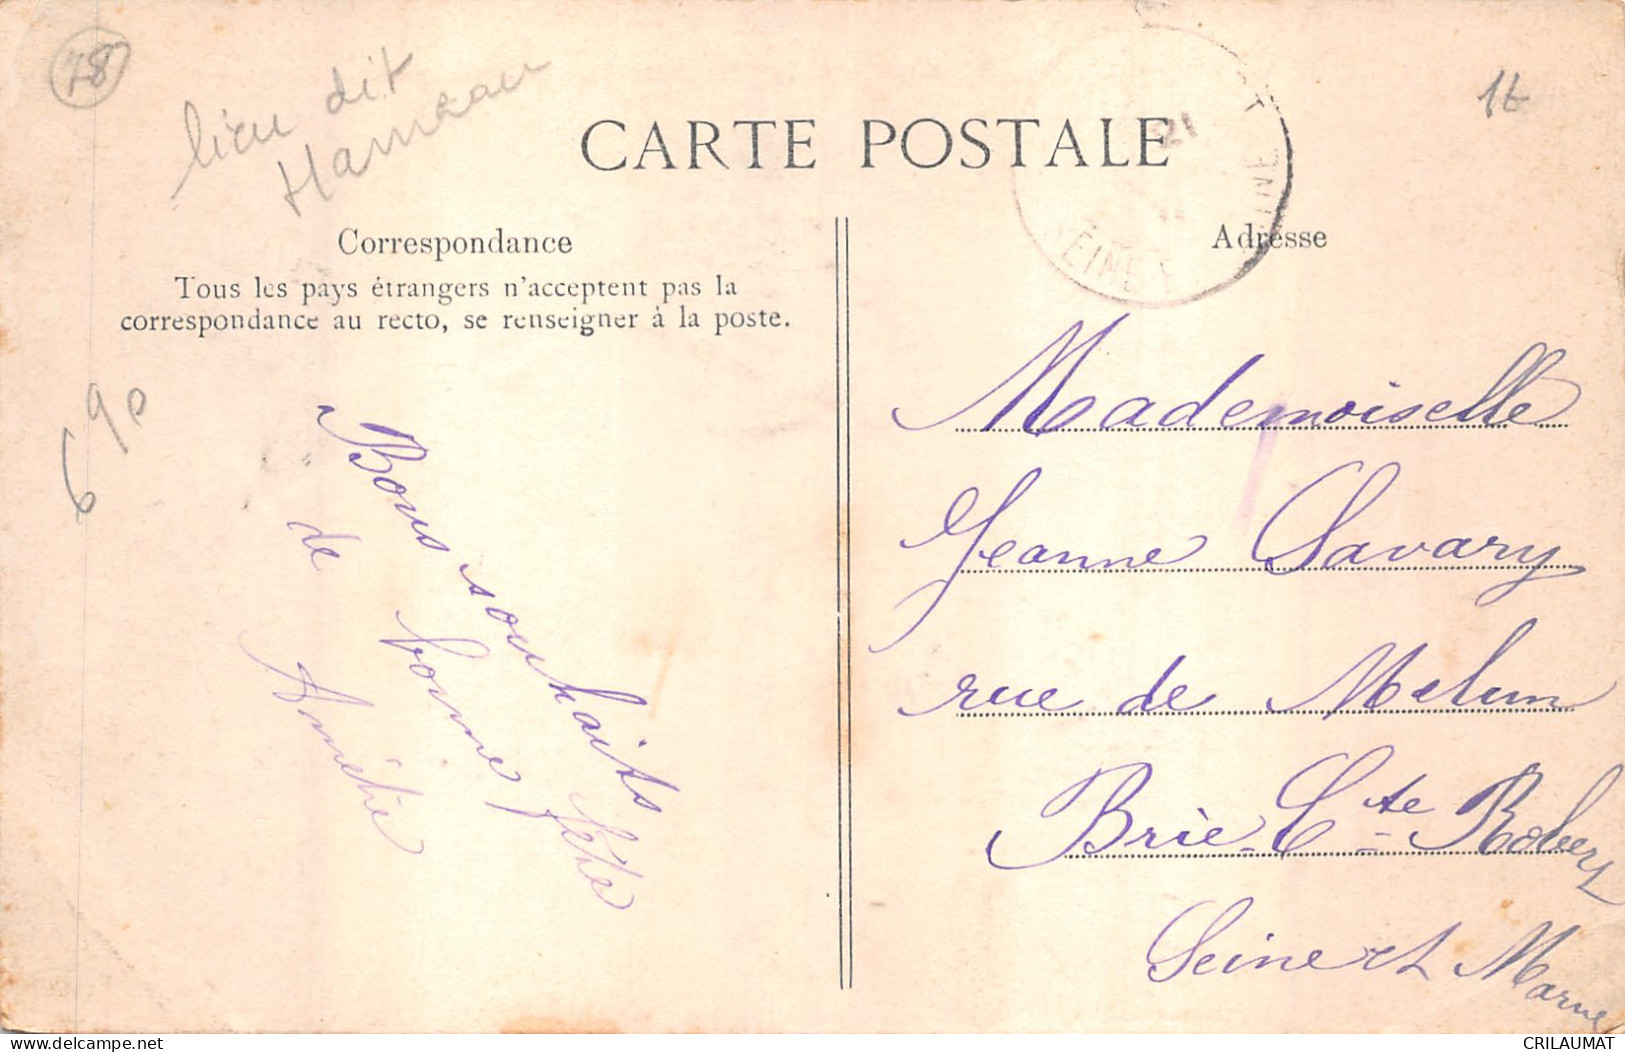 78
lieu dit
Hameau
1€
CARTE POSTALE
21
SEINE
Correspondance
Tous les pays étrangers n'acceptent pas la
correspondance au recto, se renseigner à la poste.
690
Bons souhaits
de bonne fête
Amélie
Adresse
Mademoiselle
Jeanne Savary
rue de Melun
Brie-Cte Robert
Seine et Marne
CRILAUMAT